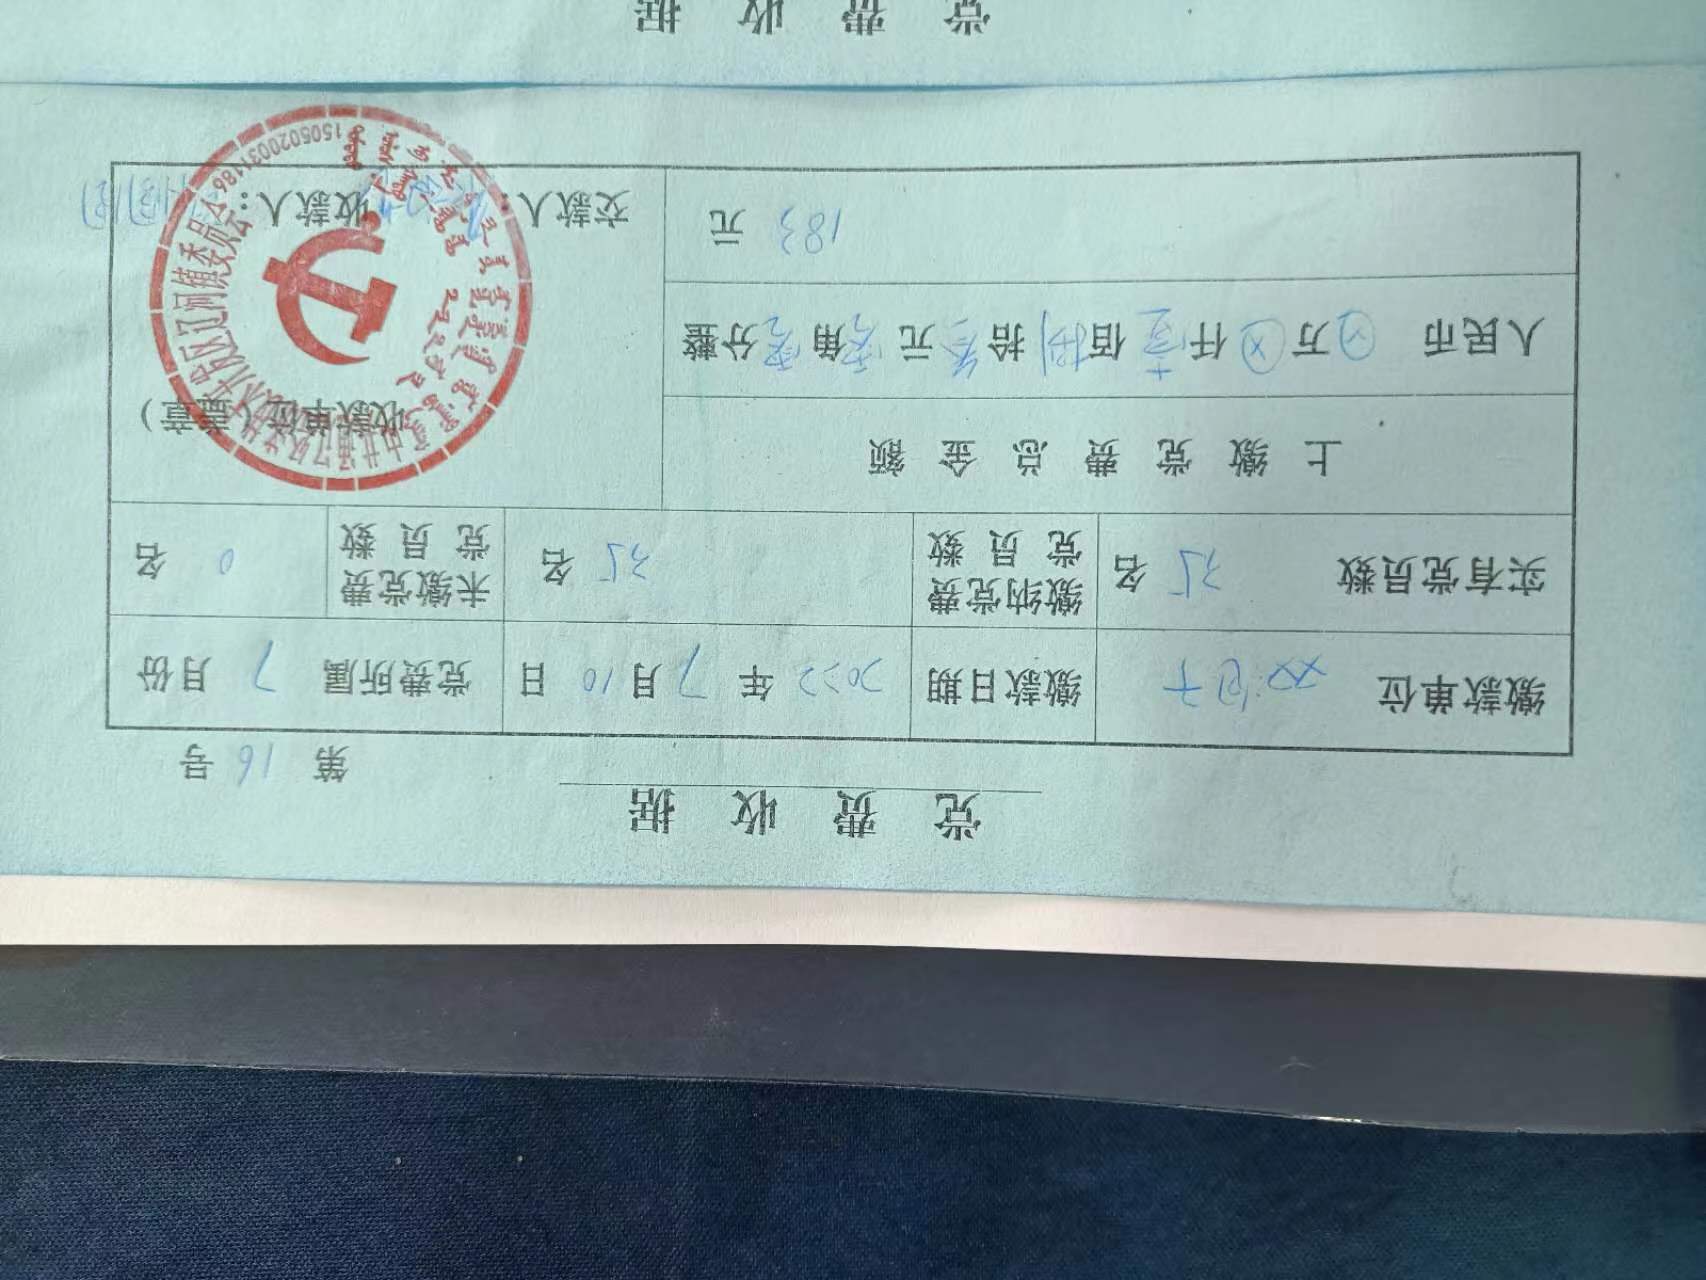 党费收据
第 16 号
缴款单位 双包干 缴款日期 2022 年 7 月 10 日 党费所属 7 月份
实有党员数 35 名 缴纳党费党员数 35 名 未缴党费党员数 0 名
上缴党费总金额
收款单位(盖章)
人民币 ⊗ 万 ⊗ 仟 壹 佰 捌 拾 叁 元 零 角 零 分整
183 元
交款人: 收款人:
1505020031186
党费收据